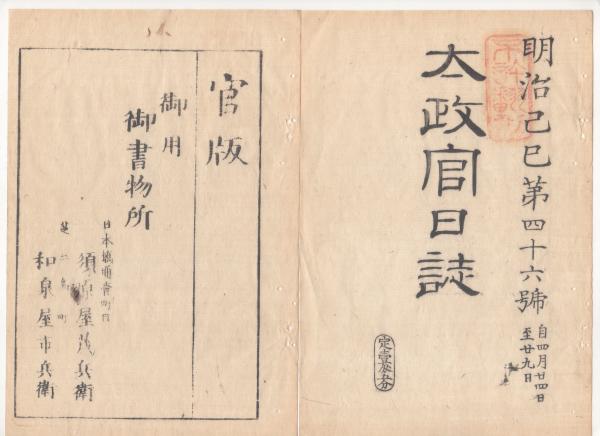 明治己巳第四十六號
自四月廿四日
至廿九日
太政官日誌
官版
御用
御書物所
日本橋通壹町目
須原屋茂兵衛
芝
和泉屋市兵衛